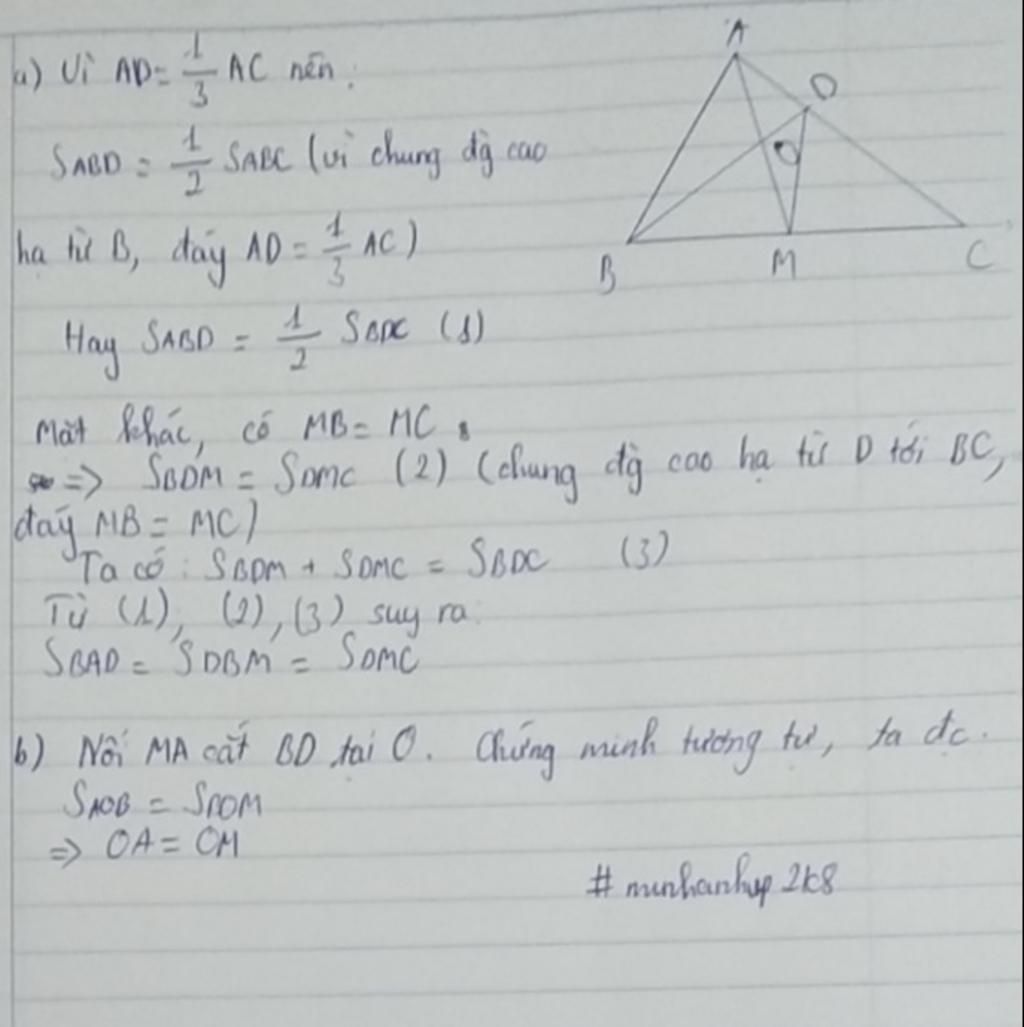 a) Vì AD = 1/3 AC nên:
SABD = 1/2 SABC (vì chung đg cao
hạ từ B, đáy AD = 1/3 AC)
Hay SABD = 1/2 SBDC (1)
Mặt khác, có MB = MC
=> SBDM = SDMC (2) (chung đg cao hạ từ D tới BC,
đáy MB = MC)
Ta có: SBDM + SDMC = SBDC (3)
Từ (1), (2), (3) suy ra:
SBAD = SDBM = SDMC
b) Nối MA cắt BD tại O. Chứng minh tương tự, ta đc.
SAOB = SBOM
=> OA = OM
A
D
O
B
M
C